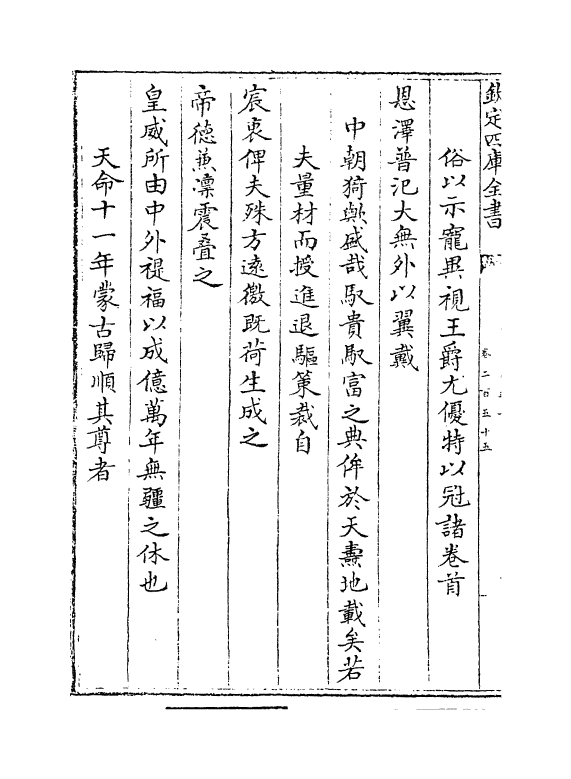 欽定四庫全書
卷二百五十五
俗以示寵異視王爵尤優特以冠諸卷首
恩澤普氾大無外以翼戴
中朝猗歟盛哉馭貴馭富之典侔於天燾地載矣若
夫量材而授進退驅策裁自
宸衷俾夫殊方遠徼既荷生成之
帝德兼凜震疊之
皇威所由中外禔福以成億萬年無疆之休也
天命十一年蒙古歸順其尊者